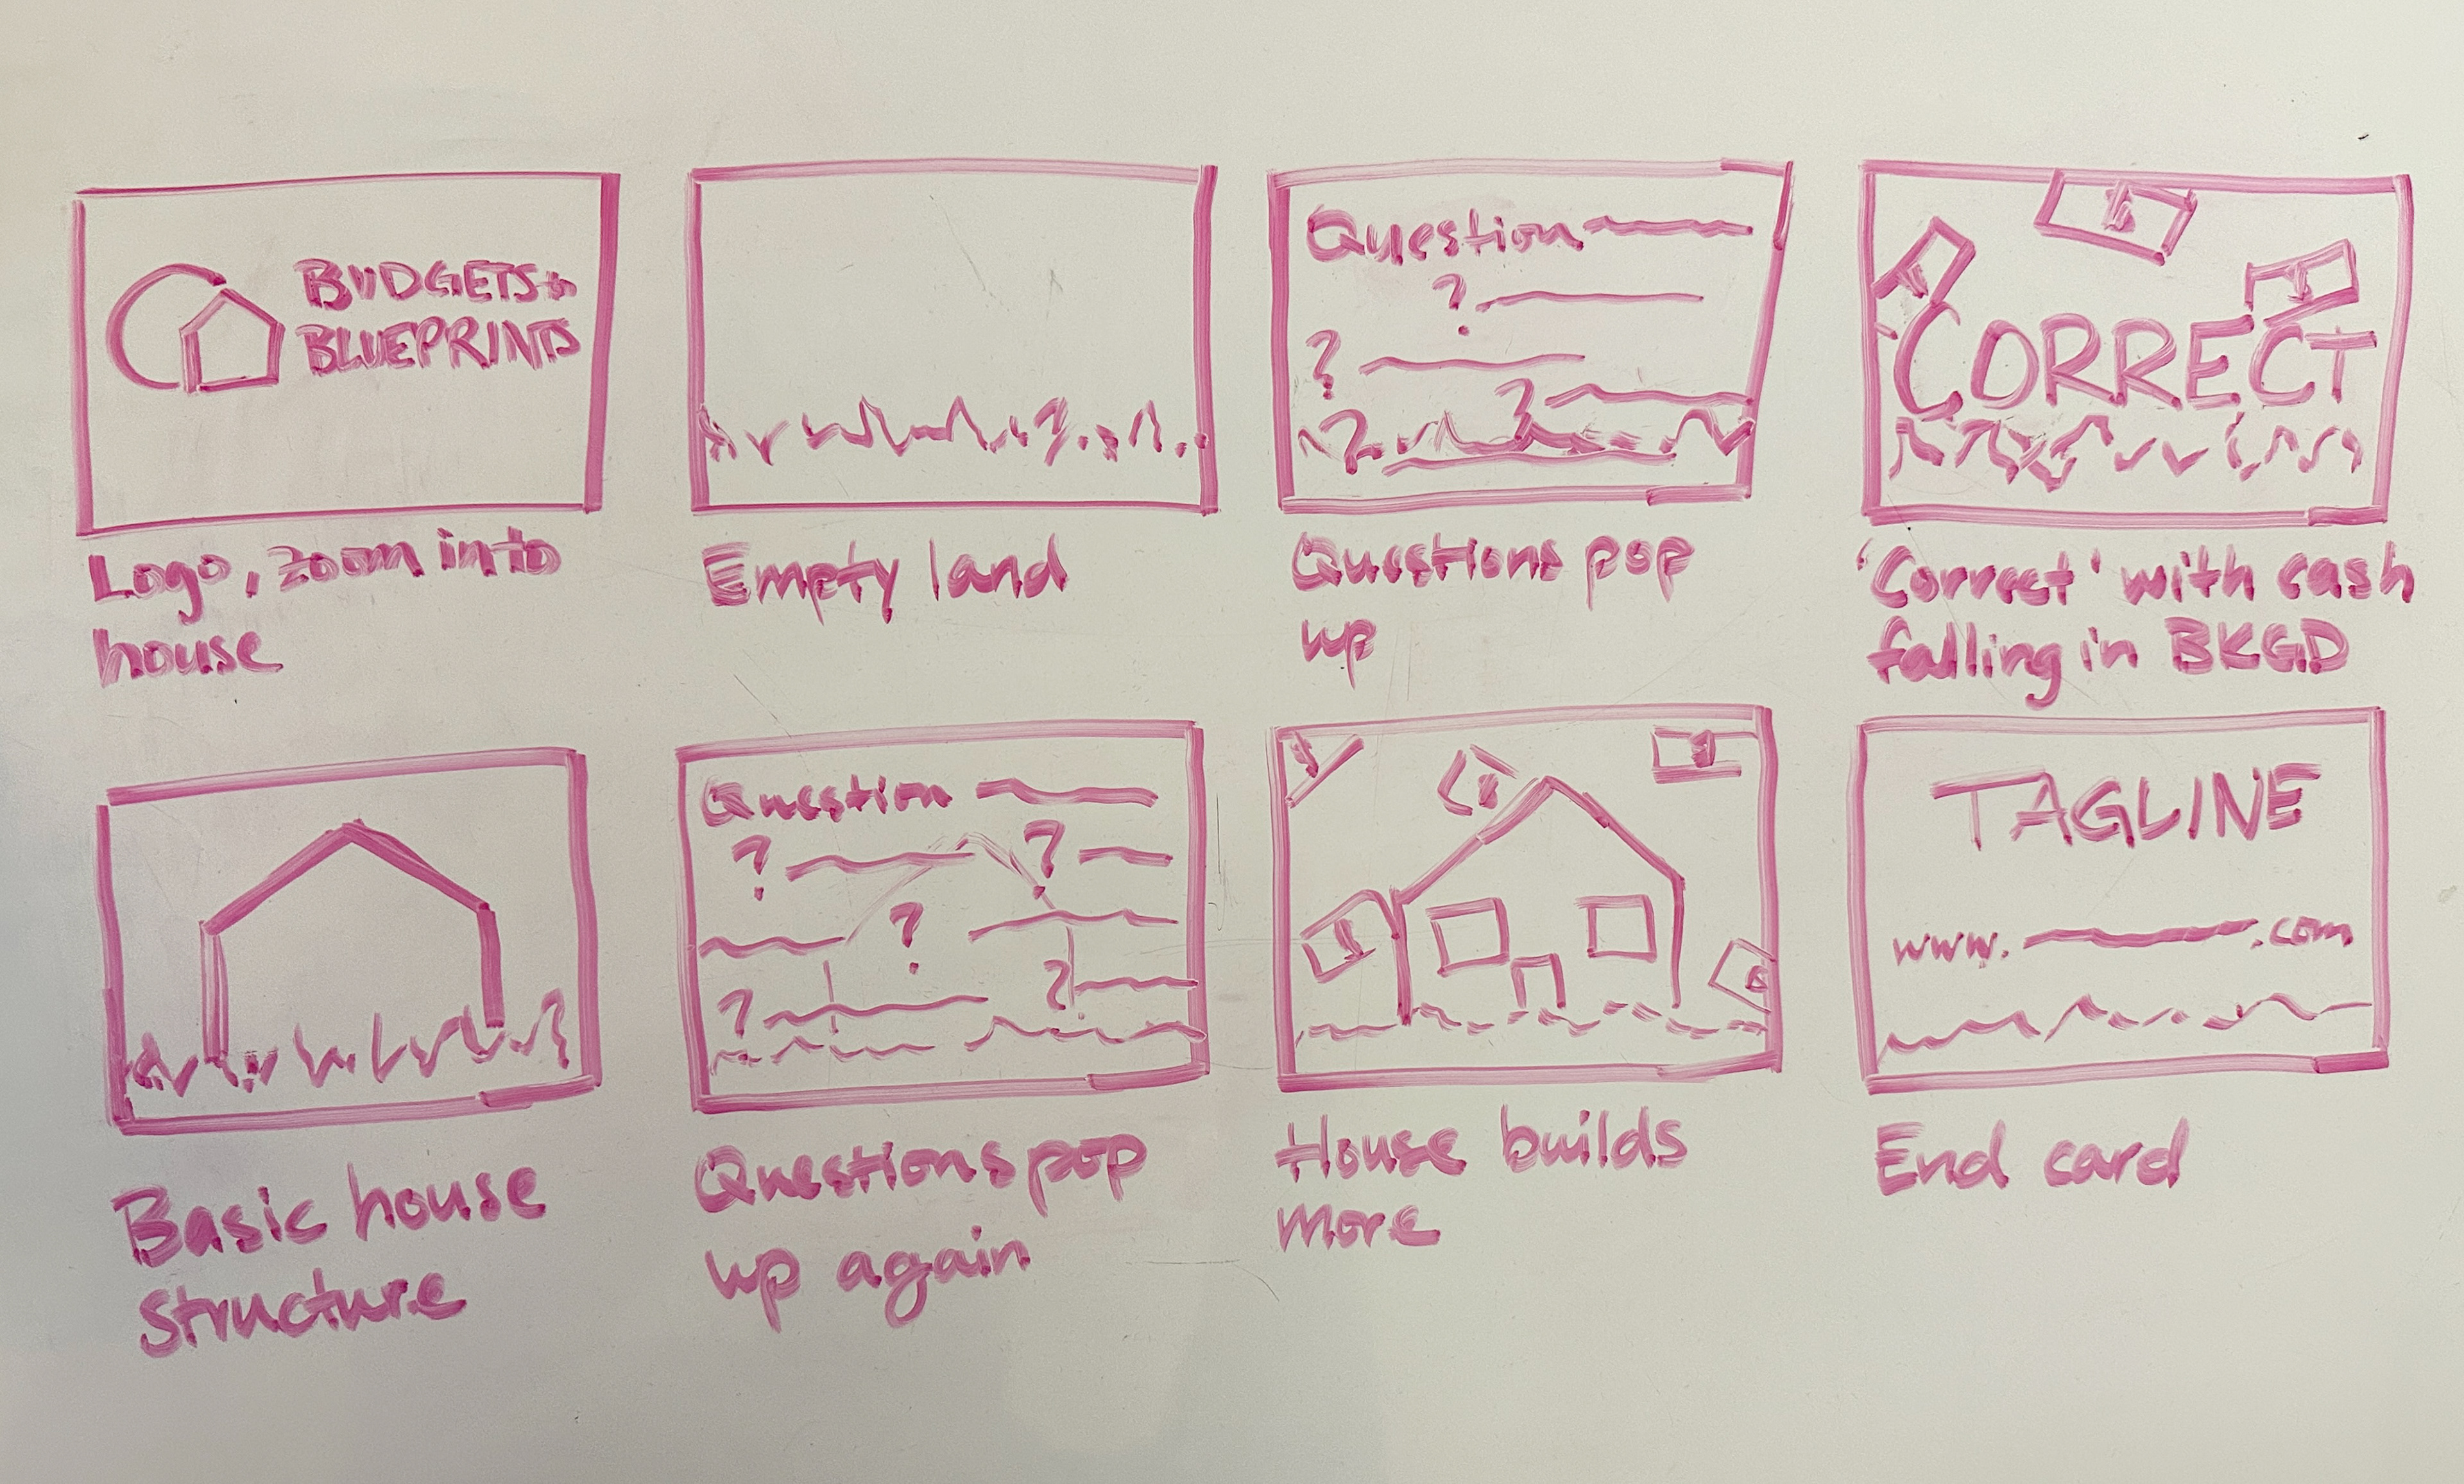 BUDGETS +
BLUEPRINTS
Logo, zoom into
house
Empty land
Question
?
?
?
?
Questions pop
up
$
$
$
CORRECT
'Correct' with cash
falling in BKGD
Basic house
structure
Question
?
?
?
?
?
Questions pop
up again
$
$
$
$
$
House builds
more
TAGLINE
www. .com
End card